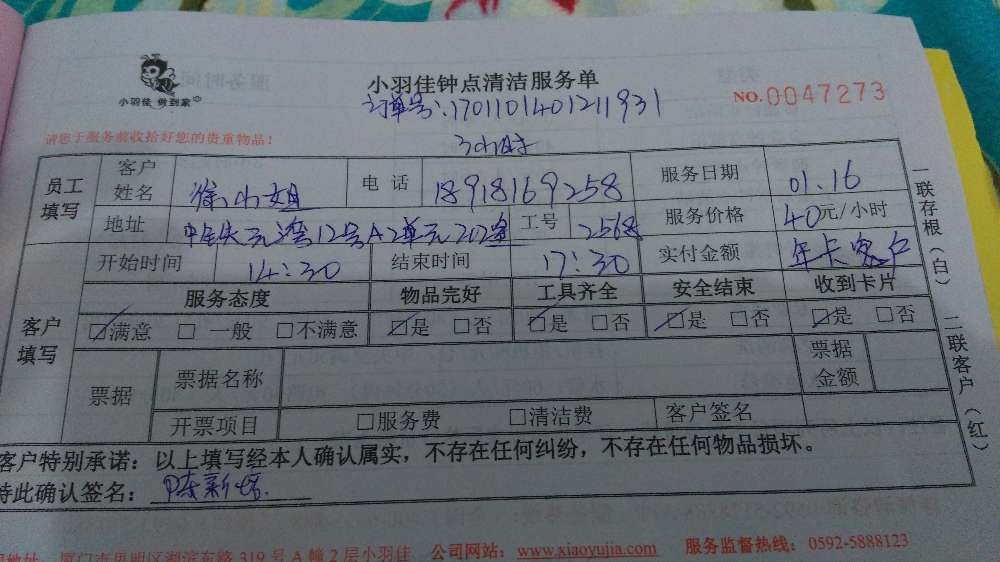 小羽佳 做到家
小羽佳钟点清洁服务单
订单号:1701101401211931
NO.0047273
请您于服务前收拾好您的贵重物品!
3小时
员工填写
客户姓名 徐小姐 电话 18918169258 服务日期 01.16
地址 12号A2单元202室 工号 2568 服务价格 40元/小时
开始时间 14:30 结束时间 17:30 实付金额 年卡客户
客户填写
服务态度 物品完好 工具齐全 安全结束 收到卡片
☑满意 □一般 □不满意 ☑是 □否 ☑是 □否 ☑是 □否 ☑是 □否
票据 票据名称 票据金额
开票项目 □服务费 □清洁费 客户签名
客户特别承诺:以上填写经本人确认属实,不存在任何纠纷,不存在任何物品损坏。
特此确认签名: 陈新
一联存根(白) 二联客户(红)
地址:厦门市思明区湖滨东路 319 号 A 幢 2 层小羽佳 公司网站:www.xiaoyujia.com 服务监督热线:0592-5888123